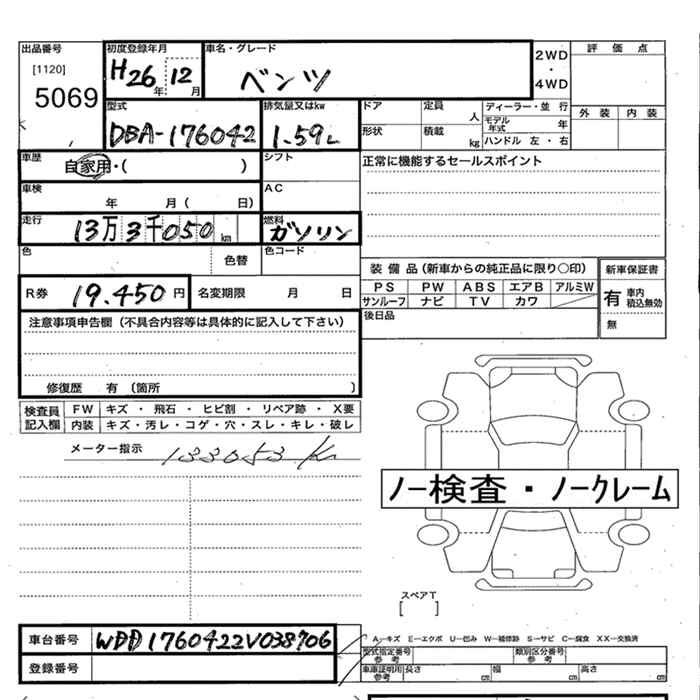 出品番号
[1120]
5069
初度登録年月
H26年 12月
車名・グレード
ベンツ
2WD
・
4WD
評価点
外装 内装
型式
DBA-176042
排気量又はkw
1.59L
ドア
定員 人
ディーラー・並行
モデル年式 年
形状
積載 kg
ハンドル 左・右
車歴
自家用・( )
シフト
正常に機能するセールスポイント
車検
年 月( 日)
AC
走行
13万3千050km
燃料
ガソリン
色
色替
色コード
装備品(新車からの純正品に限り○印)
新車保証書
PS PW ABS エアB アルミW
サンルーフ ナビ TV カワ
有 車内積込無効
無
R券 19.450円
名変期限 月 日
後日品
注意事項申告欄(不具合内容等は具体的に記入して下さい)
修復歴 有 (箇所 )
検査員記入欄
FW キズ・飛石・ヒビ割・リペア跡・X要
内装 キズ・汚レ・コゲ・穴・スレ・キレ・破レ
メーター指示 133053K
ノー検査・ノークレーム
スペアT
[ ]
車台番号 WDD1760422V038706
登録番号
A…キズ E…エクボ U…凹み W…補修跡 S…サビ C…腐食 XX…交換済
型式指定番号 参考
類別区分番号 参考
車庫証明用 参考 長さ cm 幅 cm 高さ cm